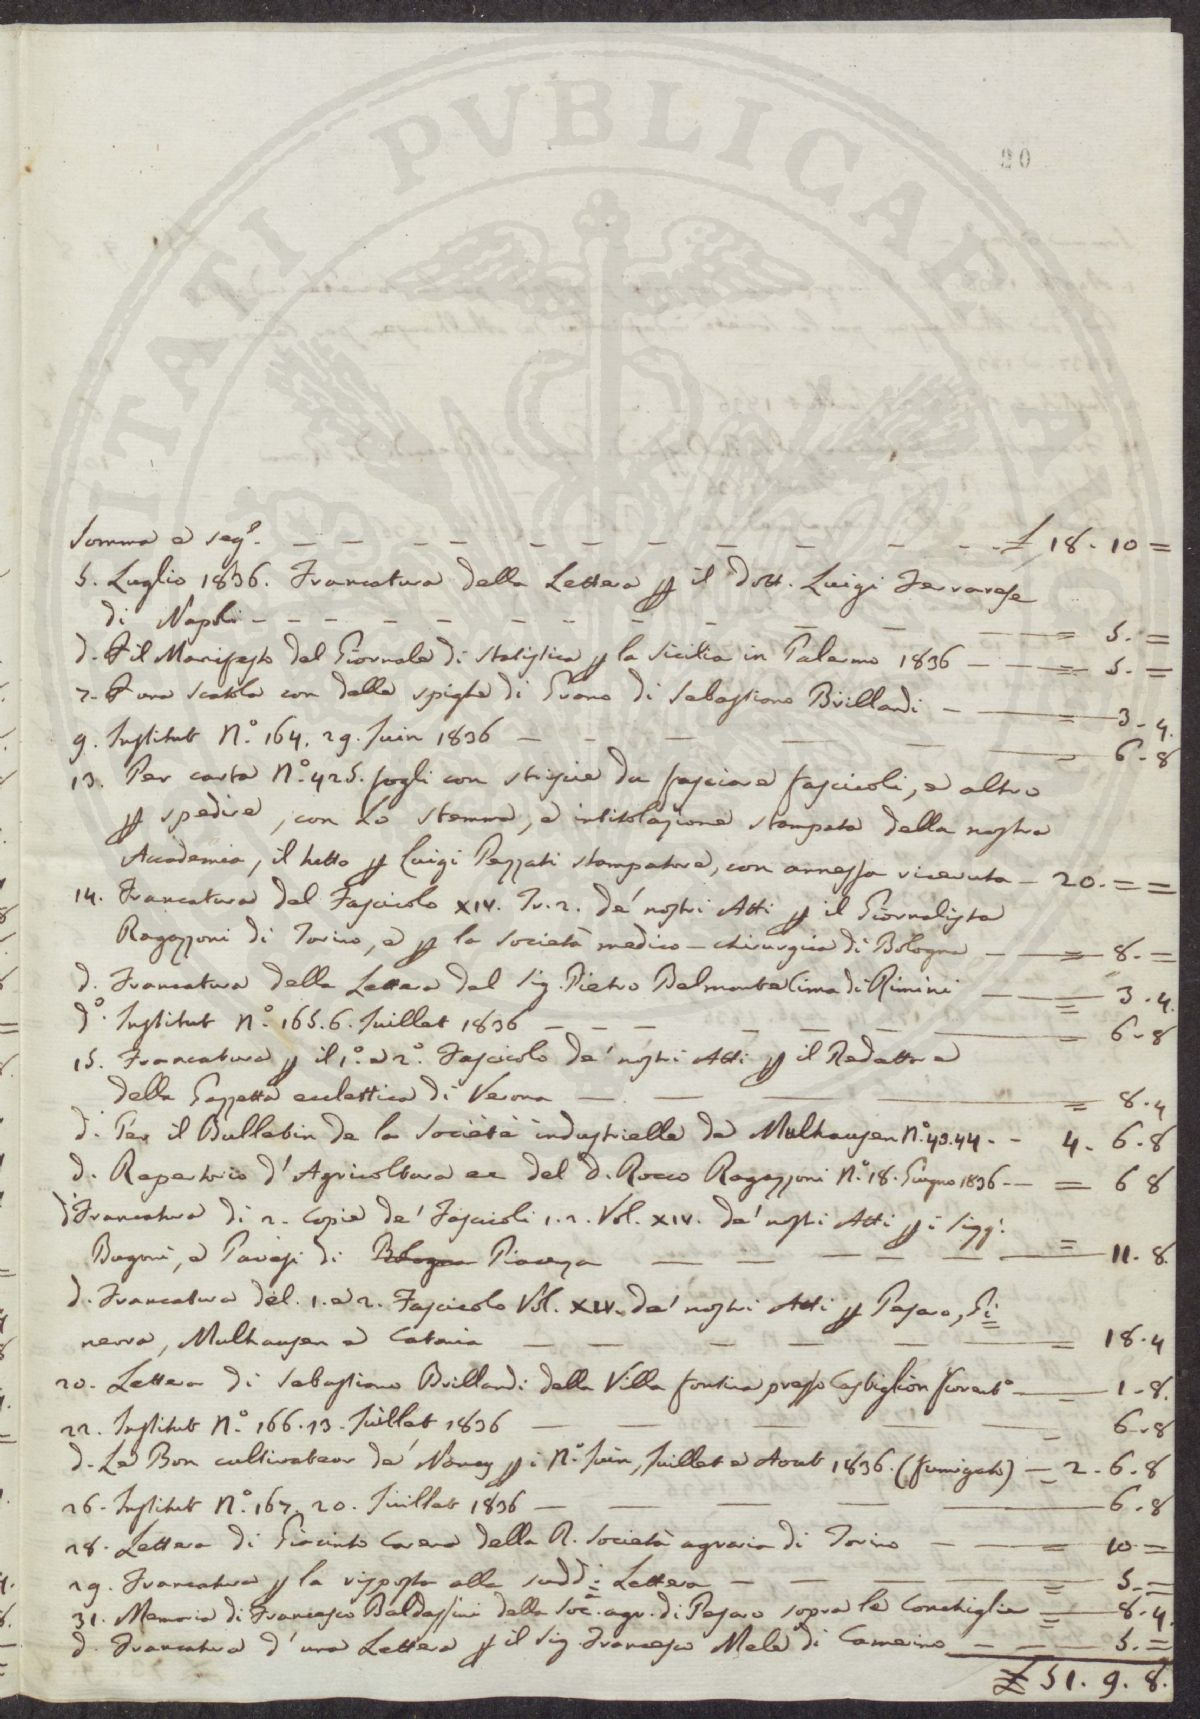 ITATI PVBLICAE
20
Somma e seg.e — — — £ 18. 10 =
5. Luglio 1836. Francatura della Lettera p il Dott. Luigi Ferrarese
di Napoli — — — = 5. =
d. P il Manifesto del Giornale di Statistica p la Sicilia in Palermo 1836 — — = 5. =
7. P una Scatola con delle spighe di Grano di Sebastiano Brillandi — = 3. 4.
9. Institut N.° 164. 29. Juin 1836 — — — 6. 8
13. Per carta N.° 425. fogli con striscie da fasciare fascicoli, e altro
p spedire, con lo stemma, e intitolazione stampata della nostra
Accademia, il tutto p Luigi Pezzati stampatore, con annessa ricevuta — 20. = =
14. Francatura del Fascicolo XIV. Tr. 2. de' nostri Atti p il Giornalista
Ragazzoni di Torino, e p la Società medico-chirurgica di Bologna — = 8. =
d. Francatura della Lettera del Sig. Pietro Belmonte Cima di Rimini — = 3. 4.
d.° Institut N.° 165. 6. Juillet 1836 — — — 6. 8
15. Francatura p il 1.° e 2.° Fascicolo de' nostri Atti p il Redattore
della Gazzetta eclettica di Verona — — = 8. 4
d. Per il Bulletin de la Société industrielle de Mulhausen N.° 43. 44. — 4. 6. 8
d. Repertorio d'Agricoltura ec del D. Rocco Ragazzoni N.° 18. Giugno 1836 — = 6 8
d. Francatura di 2. Copie de' Fascicoli 1. 2. Vol. XIV. de' nostri Atti p i Sigg.i
Bugoni, e Pavesi di Bologna Piacenza — — = 11. 8.
d. Francatura del. 1. e 2. Fascicolo Vol. XIV. de' nostri Atti p Pesaro, Gi=
nevra, Mulhausen e Catania — — = 18. 4
20. Lettera di Sebastiano Brillandi della Villa Fontina presso Castiglion Fiorent.° — = 1. 8.
22. Institut N.° 166. 13. Juillet 1836 — — — 6. 8
d. Le Bon cultivateur de Nancy p i N.i Juin, Juillet e Aout 1836. (fumigato) — 2. 6. 8
26. Institut N.° 167. 20. Juillet 1836 — — — 6. 8
28. Lettera di Giacinto Carena della R. Società agraria di Torino — = 10 =
29. Francatura p la risposta alla sudd.a Lettera — = 5. =
31. Memoria di Francesco Baldassini della Soc. agr. di Pesaro sopra le Conchiglie = 8. 4.
d. Francatura d'una Lettera p il Sig. Francesco Mele di Camerino — — 5. =
£ 51. 9. 8.